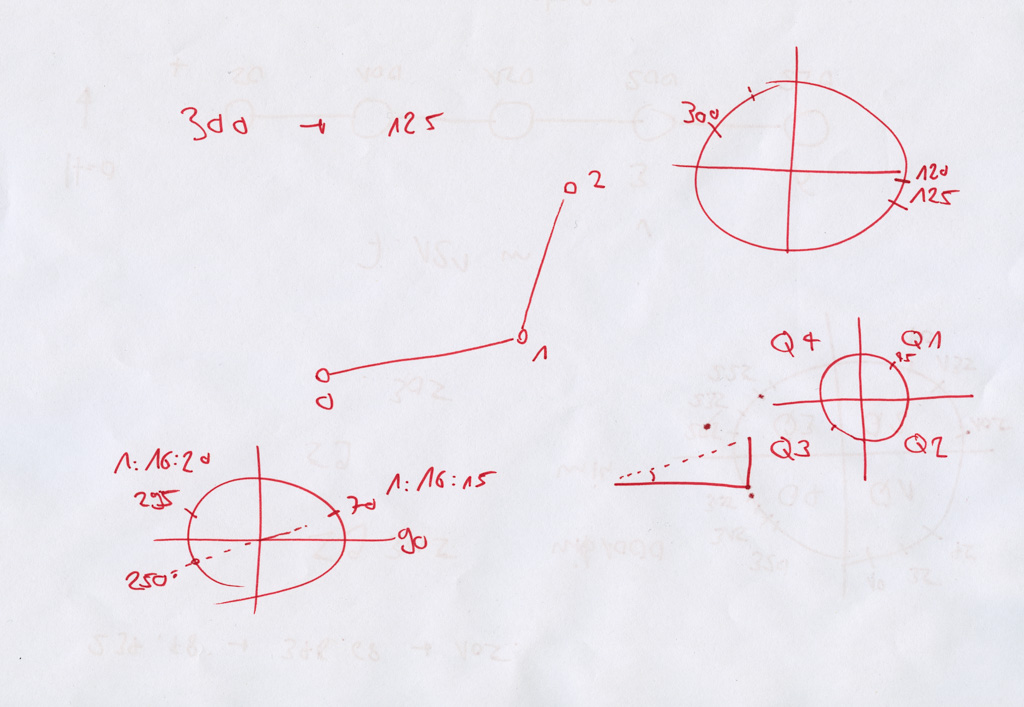 300 → 125
300
120
125
2
1
0
Q4 Q1
Q3 Q2
1:16:20
295
70 1:16:15
90
250: